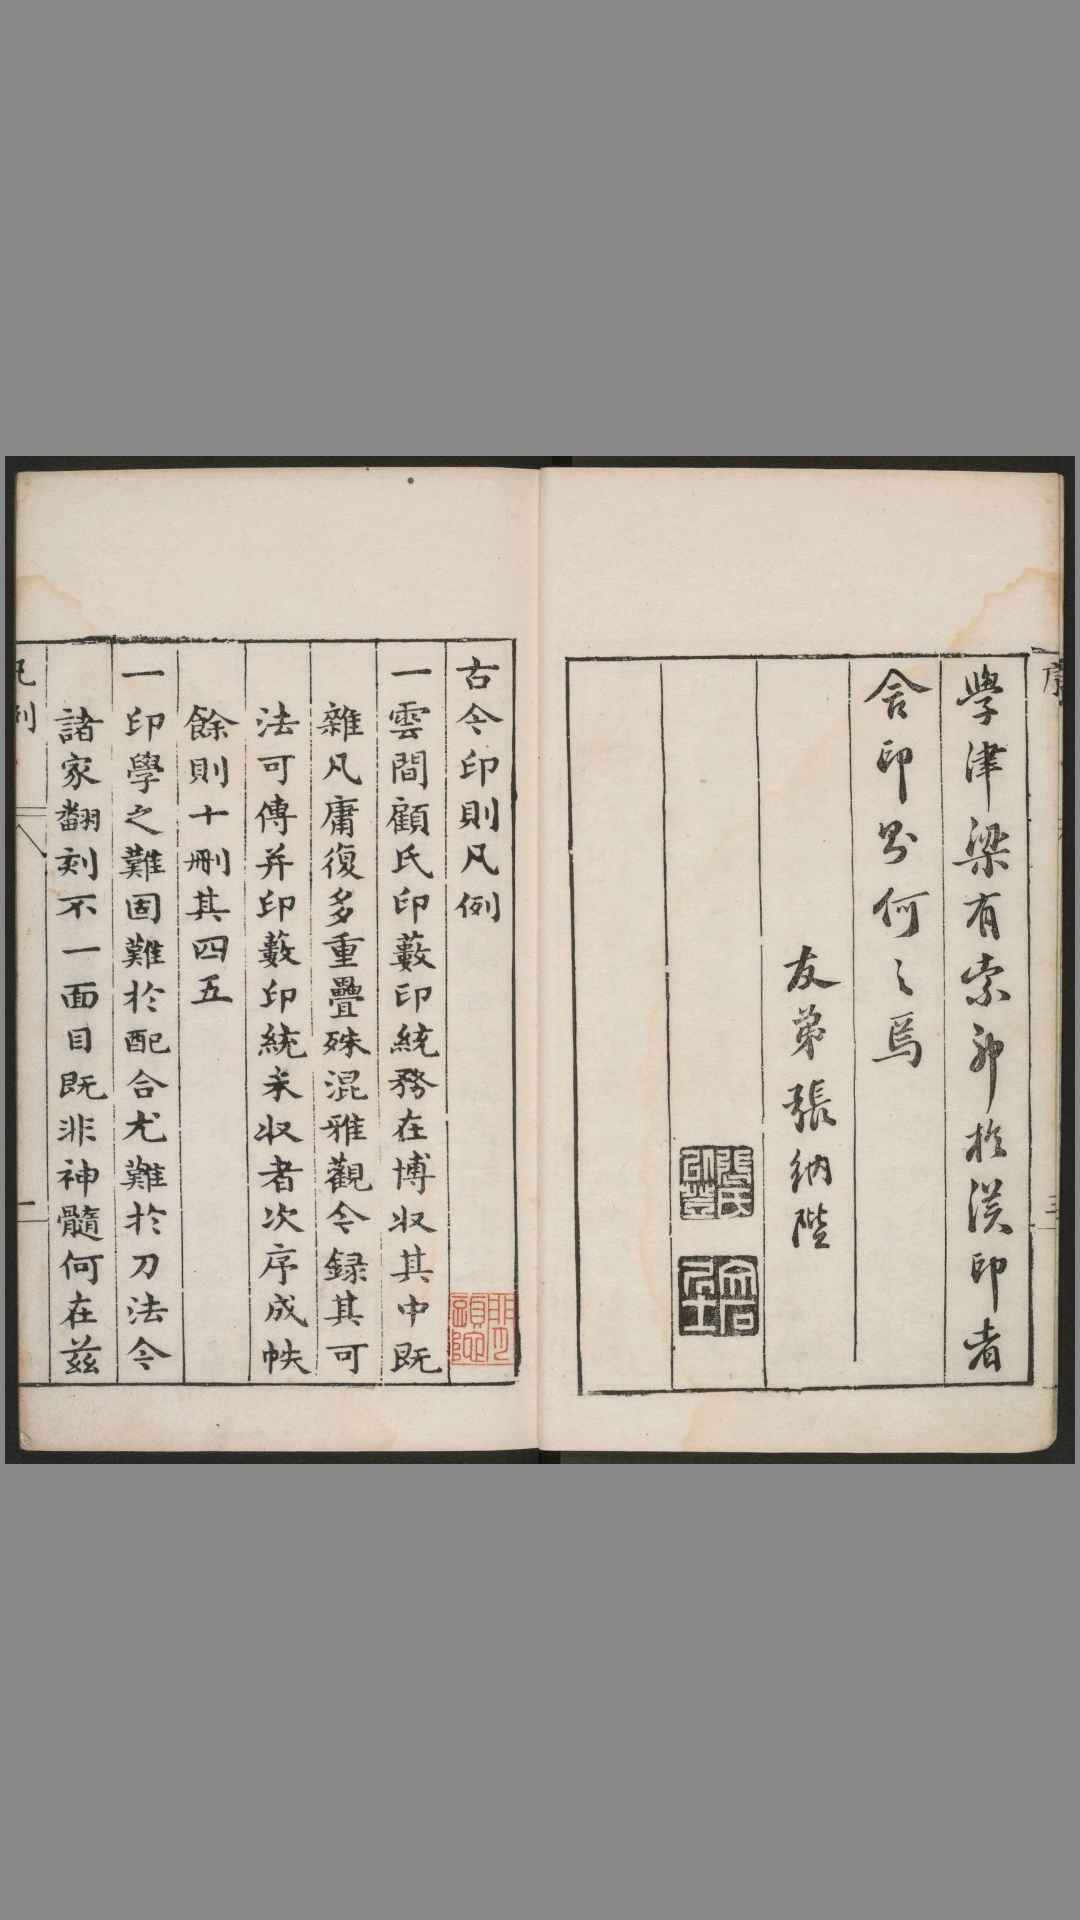 學津梁有索郢於漢印者
舍印則何之焉
友弟張納陛
古今印則凡例
一雲間顧氏印藪印統務在博收其中既
雜凡庸復多重疊殊混雅觀今録其可
法可傳并印藪印統未收者次序成帙
餘則十刪其四五
一印學之難固難於配合尤難於刀法今
諸家翻刻不一面目既非神髓何在茲
凡例
二